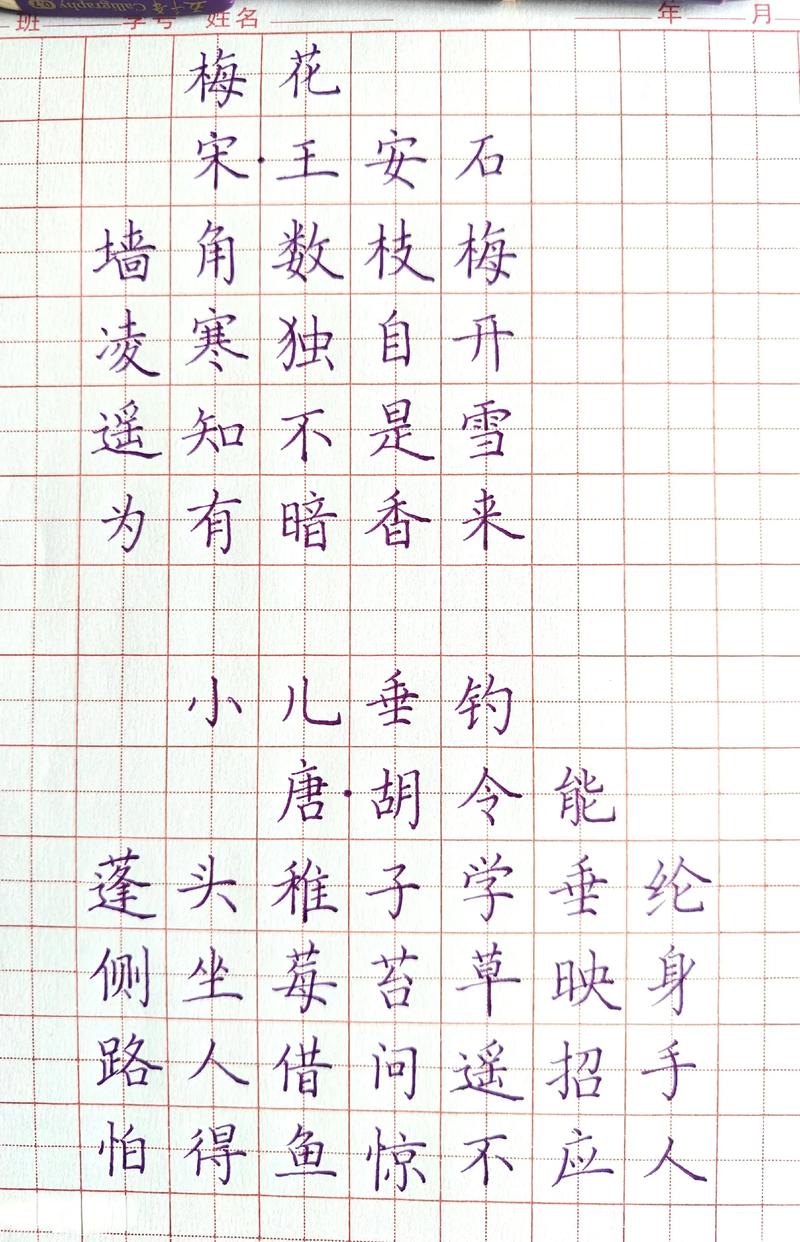 五千年 Calligraphy
班 学号 姓名 年 月
梅花
宋·王安石
墙角数枝梅
凌寒独自开
遥知不是雪
为有暗香来
小儿垂钓
唐·胡令能
蓬头稚子学垂纶
侧坐莓苔草映身
路人借问遥招手
怕得鱼惊不应人